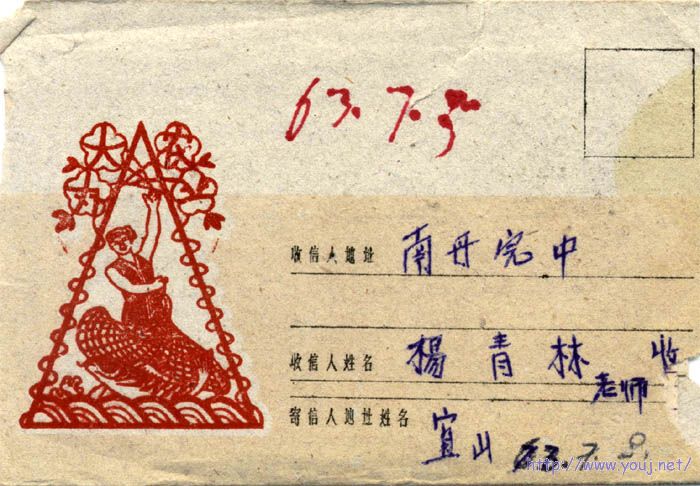 63.7.5
大办农业
收信人地址 南丹完中
收信人姓名 楊青林 收
老师
寄信人地址姓名 宜山 63.7.
http://www.youj.net/